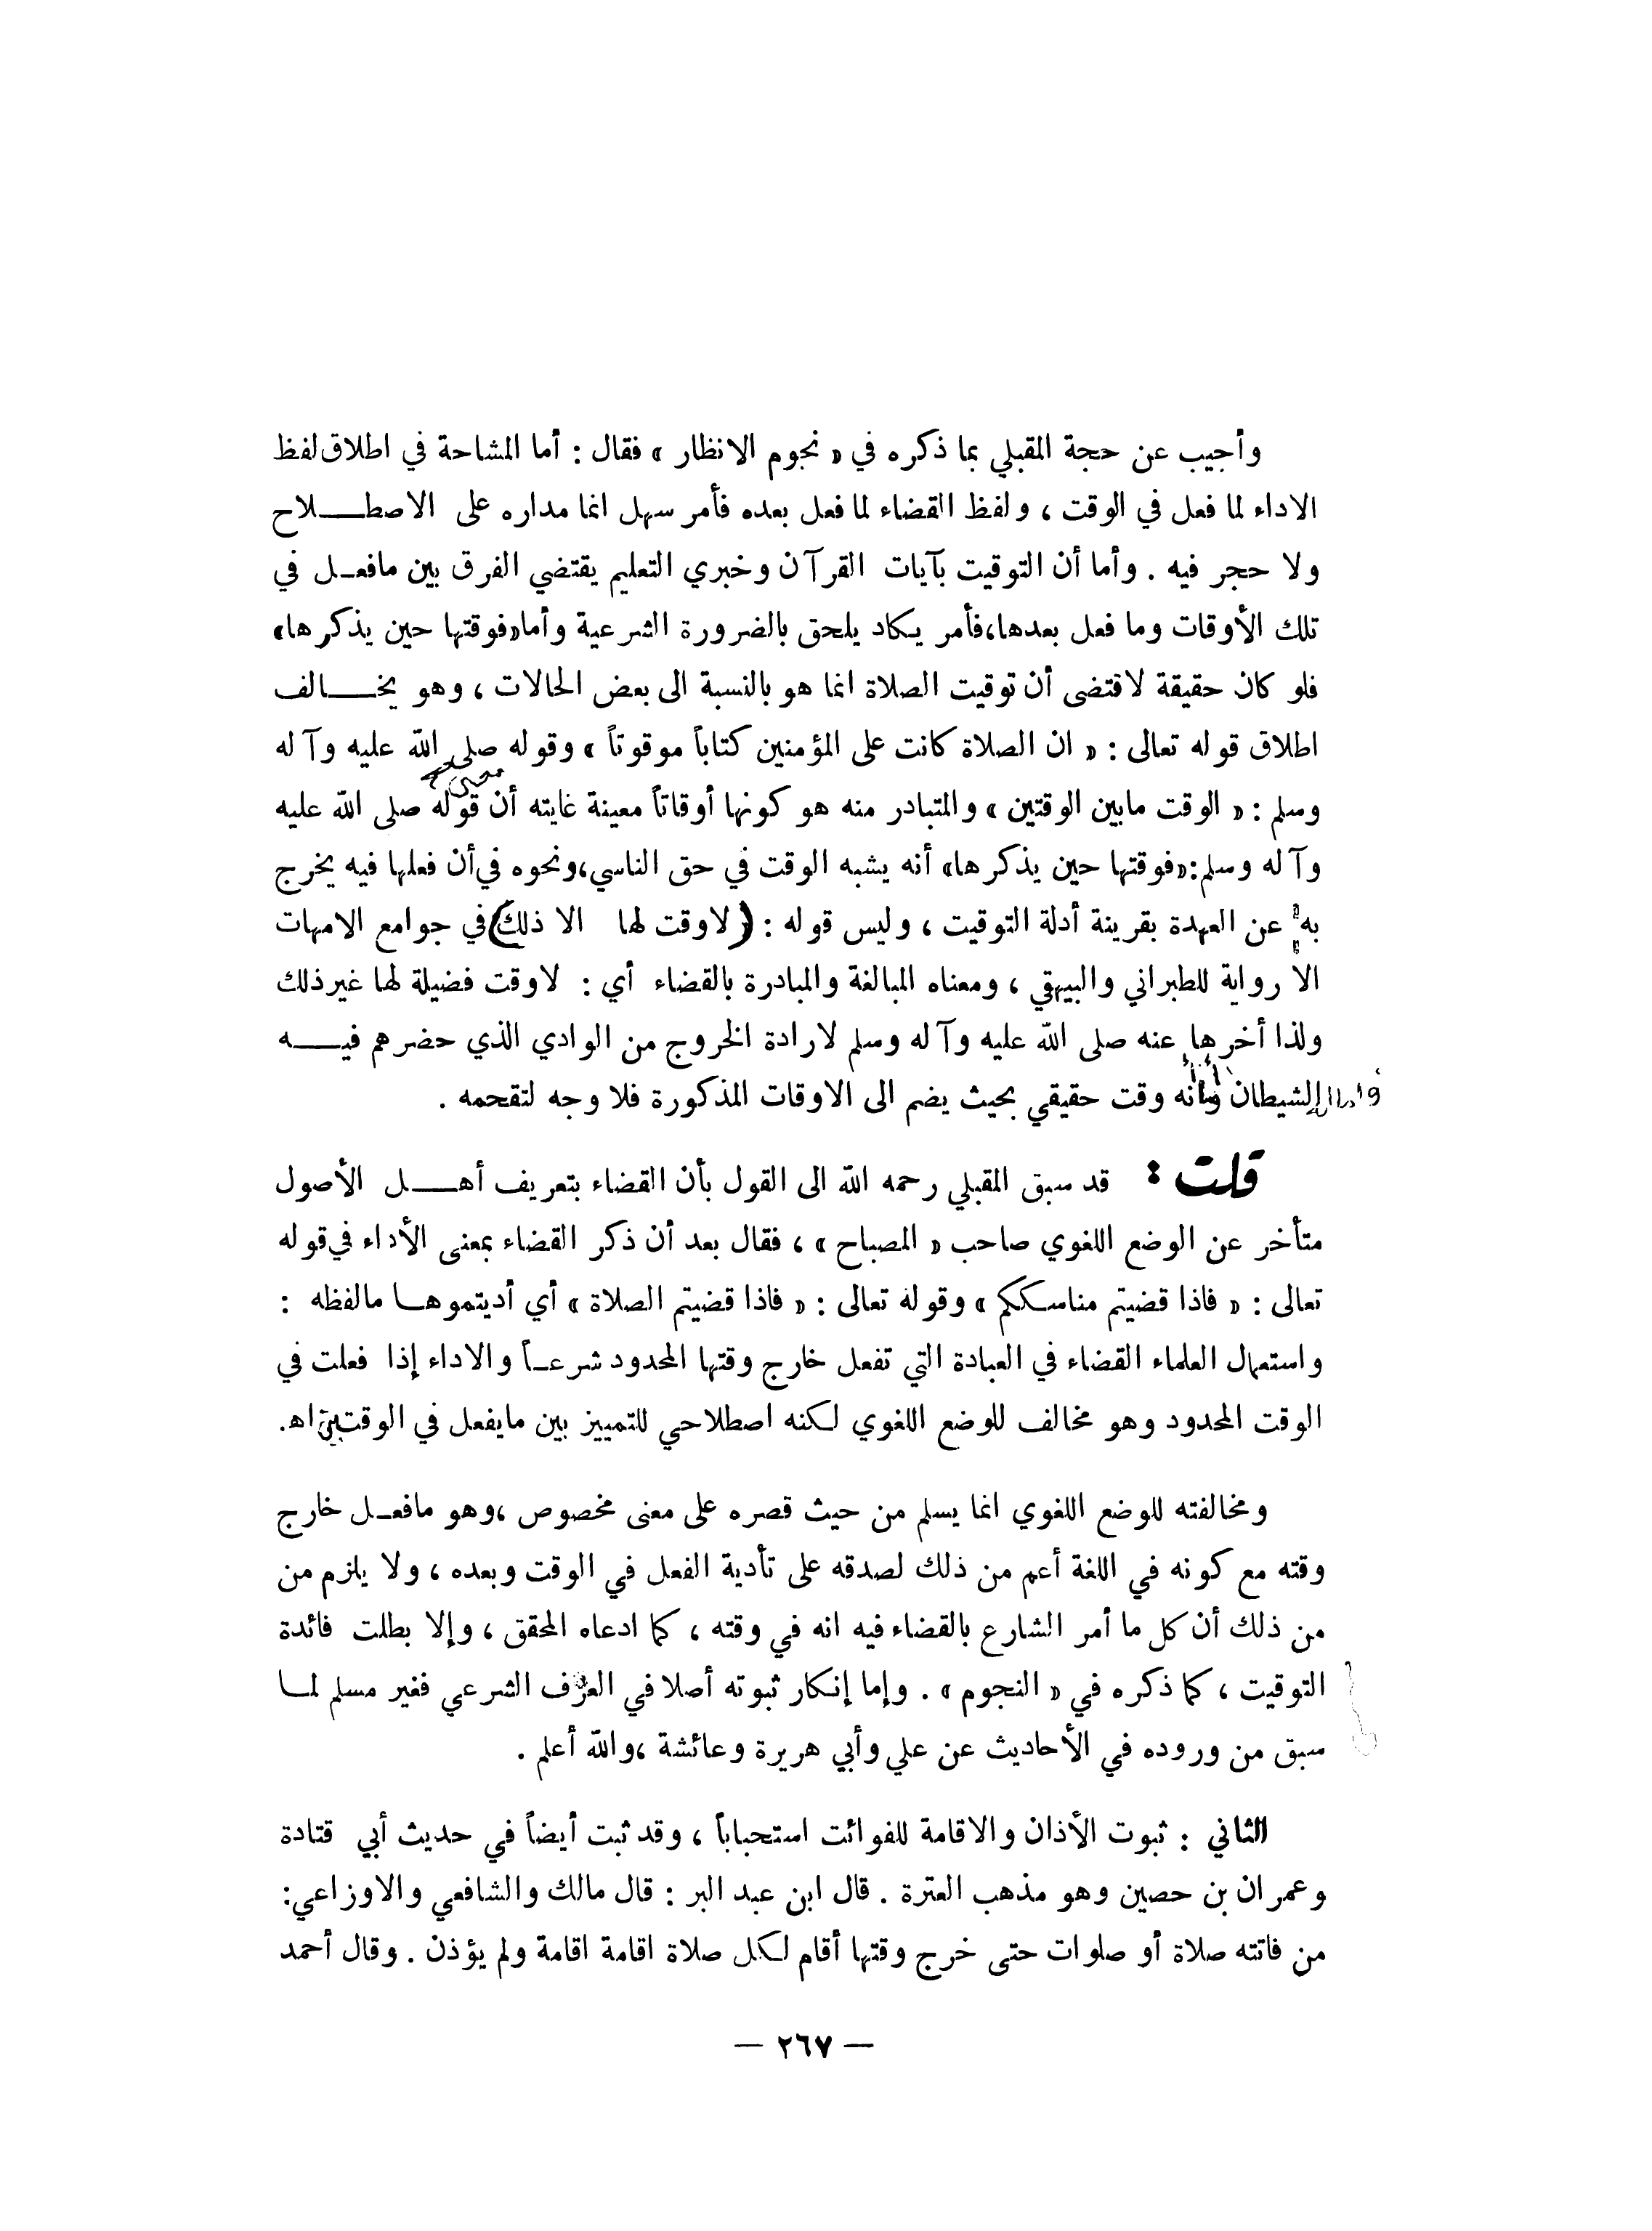 وأجيب عن حجة المقبلي بما ذكره في « نجوم الانظار » فقال : أما المشاحة في اطلاق لفظ
الاداء لما فعل في الوقت ، ولفظ القضاء لما فعل بعده فأمر سهل انما مداره على الاصطلاح
ولا حجر فيه . وأما أن التوقيت بآيات القرآن وخبري التعليم يقتضي الفرق بين مافعل في
تلك الأوقات وما فعل بعدها،فأمر يكاد يلحق بالضرورة الشرعية وأما«فوقتها حين يذكرها»
فلو كان حقيقة لاقتضى أن توقيت الصلاة انما هو بالنسبة الى بعض الحالات ، وهو يخالف
اطلاق قوله تعالى : « ان الصلاة كانت على المؤمنين كتاباً موقوتاً » وقوله صلى الله عليه وآله
وسلم : « الوقت مابين الوقتين » والمتبادر منه هو كونها أوقاتاً معينة غايته أن قوله صلى الله عليه
وآله وسلم:«فوقتها حين يذكرها» أنه يشبه الوقت في حق الناسي،ونحوه في أن فعلها فيه يخرج
به عن العهدة بقرينة أدلة التوقيت ، وليس قوله : ( لاوقت لها الا ذلك)في جوامع الامهات
الا رواية للطبراني والبيهقي ، ومعناه المبالغة والمبادرة بالقضاء أي : لاوقت فضيلة لها غير ذلك
ولذا أخرها عنه صلى الله عليه وآله وسلم لارادة الخروج من الوادي الذي حضرهم فيه
الشيطان وأنه وقت حقيقي بحيث يضم الى الاوقات المذكورة فلا وجه لتقحمه .
قلت : قد سبق المقبلي رحمه الله الى القول بأن القضاء بتعريف أهل الأصول
متأخر عن الوضع اللغوي صاحب « المصباح » ، فقال بعد أن ذكر القضاء بمعنى الأداء في قوله
تعالى : « فاذا قضيتم مناسككم » وقوله تعالى : « فاذا قضيتم الصلاة » أي أديتموها مالفظه :
واستعمال العلماء القضاء في العبادة التي تفعل خارج وقتها المحدود شرعاً والاداء إذا فعلت في
الوقت المحدود وهو مخالف للوضع اللغوي لكنه اصطلاحي للتمييز بين مايفعل في الوقتين اهـ.
ومخالفته للوضع اللغوي انما يسلم من حيث قصره على معنى مخصوص ،وهو مافعل خارج
وقته مع كونه في اللغة أعم من ذلك لصدقه على تأدية الفعل في الوقت وبعده ، ولا يلزم من
من ذلك أن كل ما أمر الشارع بالقضاء فيه انه في وقته ، كما ادعاه المحقق ، وإلا بطلت فائدة
التوقيت ، كما ذكره في « النجوم » . وإما إنكار ثبوته أصلا في العرف الشرعي فغير مسلم لما
سبق من وروده في الأحاديث عن علي وأبي هريرة وعائشة ،والله أعلم .
الثاني : ثبوت الأذان والاقامة للفوائت استحباباً ، وقد ثبت أيضاً في حديث أبي قتادة
وعمران بن حصين وهو مذهب العترة . قال ابن عبد البر : قال مالك والشافعي والاوزاعي:
من فاتته صلاة أو صلوات حتى خرج وقتها أقام لكل صلاة اقامة اقامة ولم يؤذن . وقال أحمد
— ٢٦٧ —